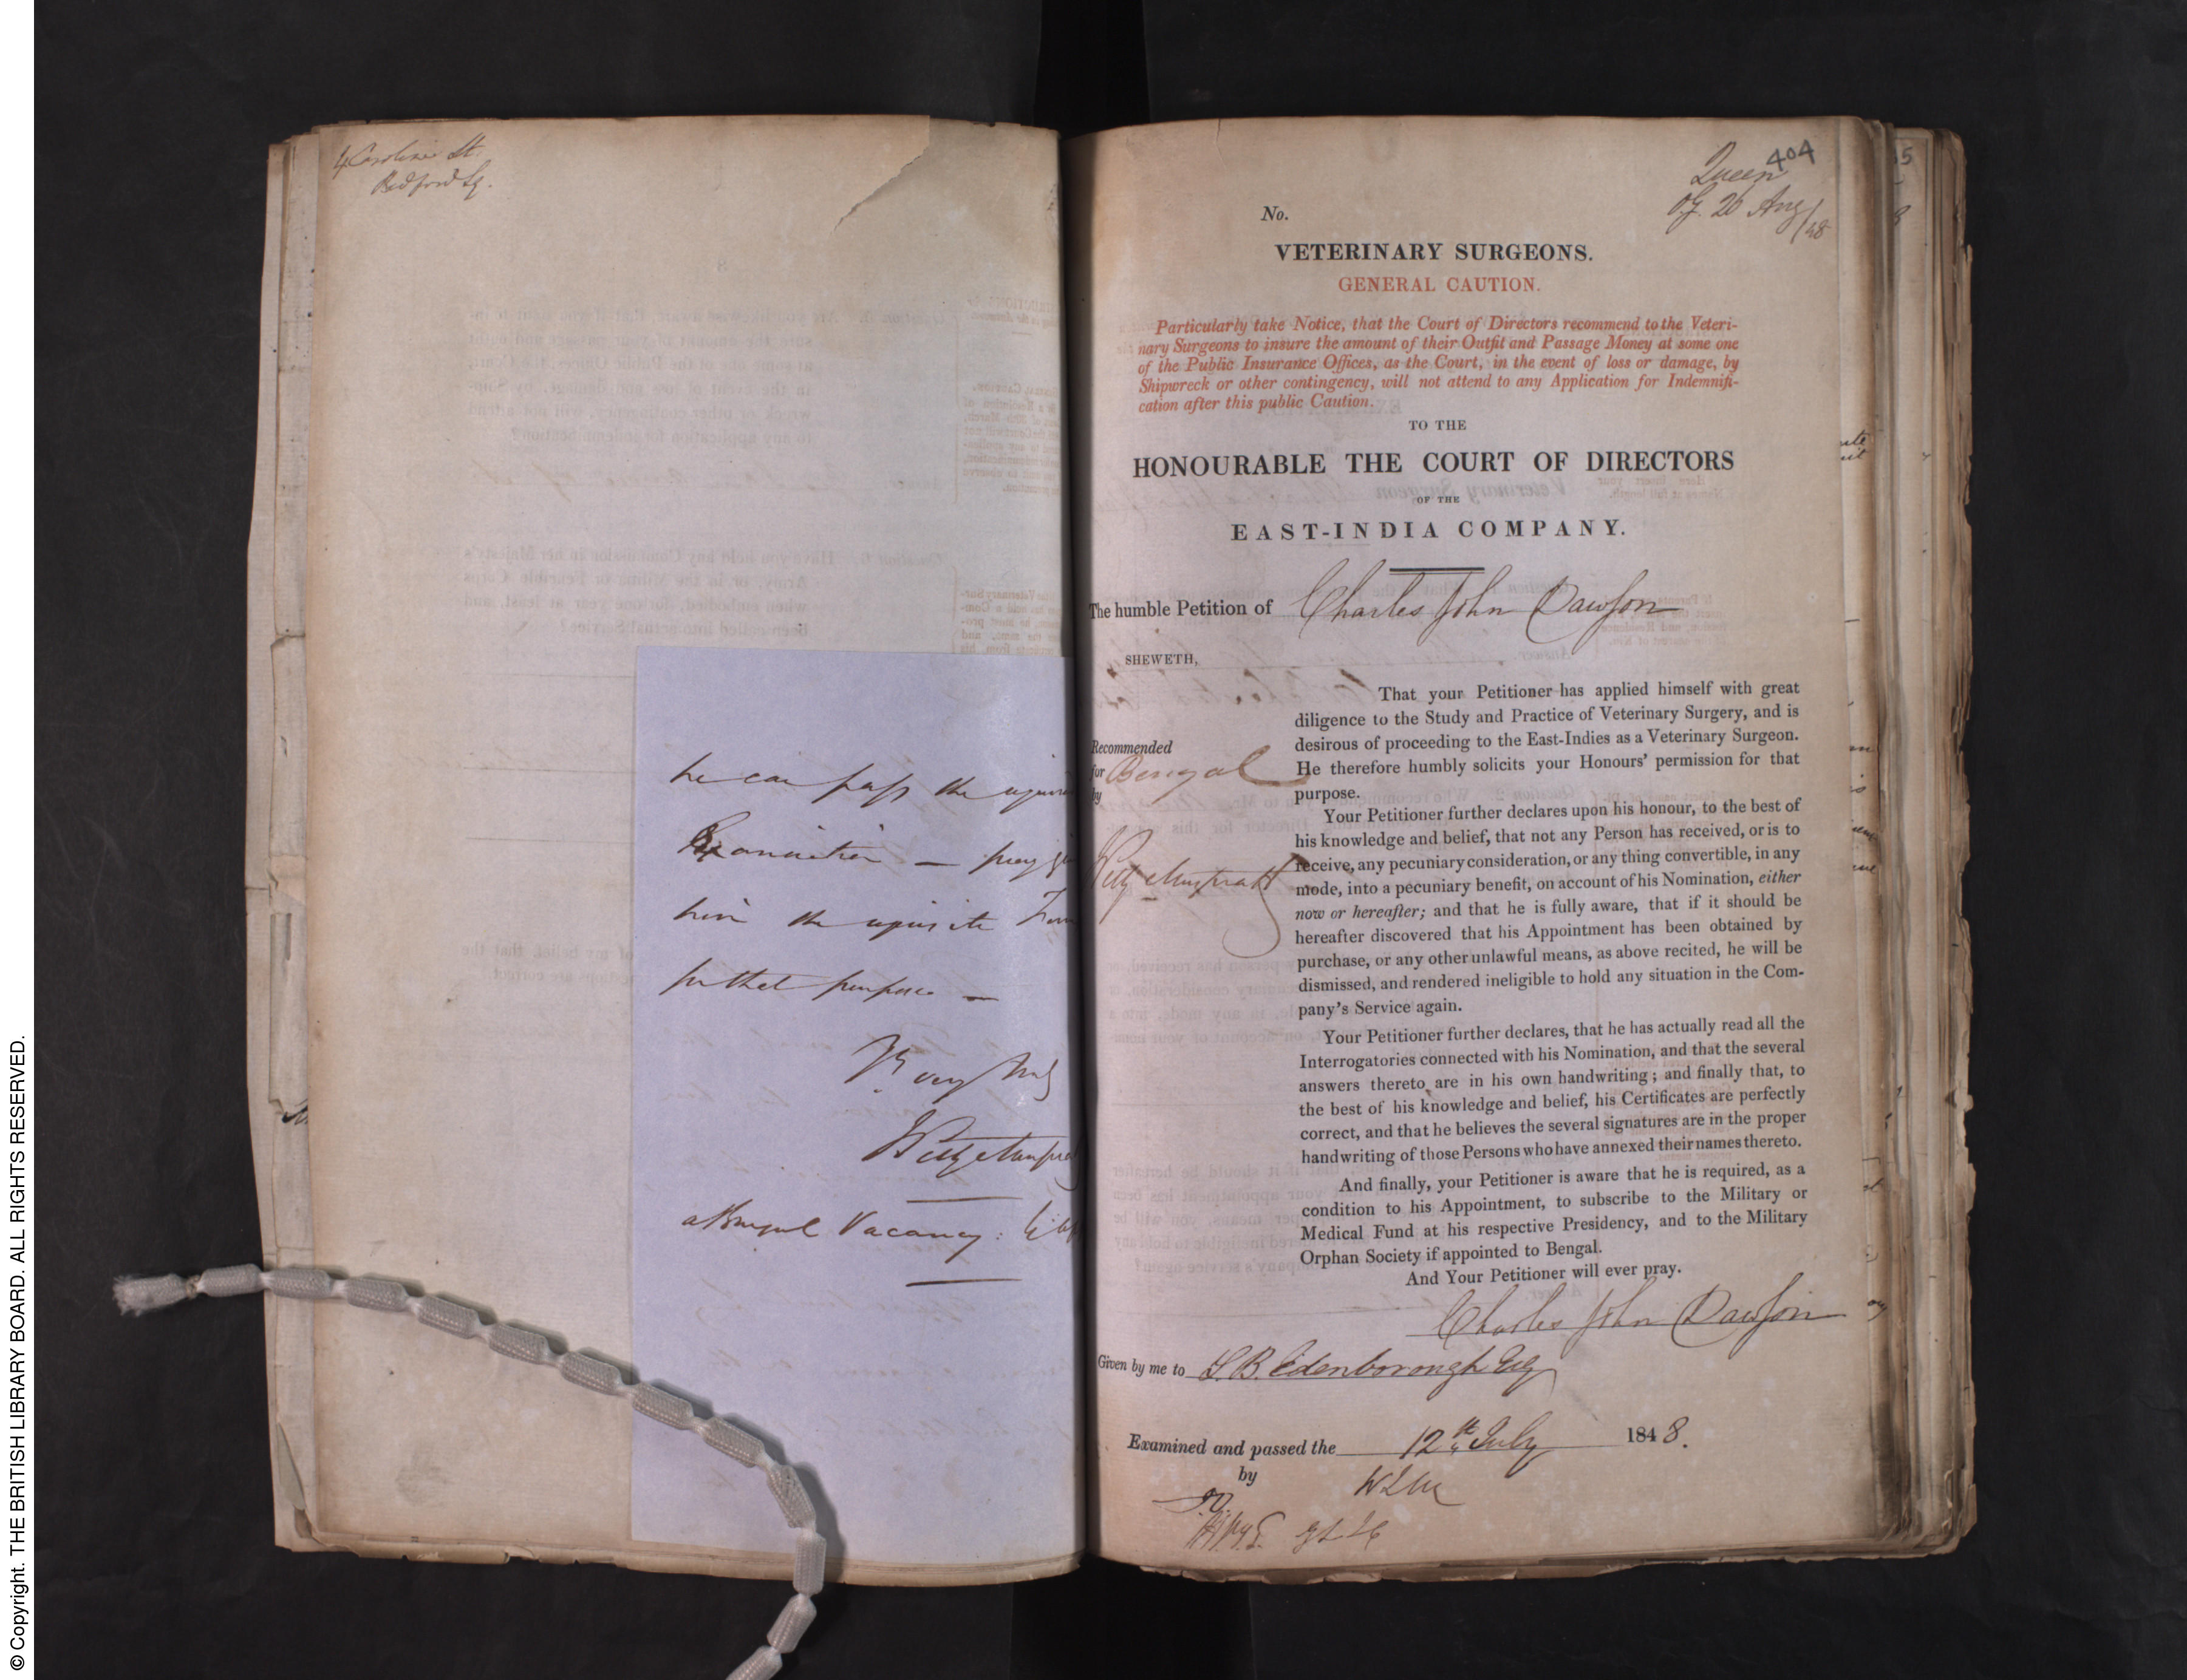 4 Caroline St.
Bedford Sq.
he can pass the
Examination — pray
him the requisite
for that purpose —
Vacancy:
404
Queen
26 Aug/48
No.
VETERINARY SURGEONS.
GENERAL CAUTION.
Particularly take Notice, that the Court of Directors recommend to the Veteri-
nary Surgeons to insure the amount of their Outfit and Passage Money at some one
of the Public Insurance Offices, as the Court, in the event of loss or damage, by
Shipwreck or other contingency, will not attend to any Application for Indemnifi-
cation after this public Caution.
TO THE
HONOURABLE THE COURT OF DIRECTORS
OF THE
EAST-INDIA COMPANY.
The humble Petition of Charles John Dawson
SHEWETH,
That your Petitioner has applied himself with great
diligence to the Study and Practice of Veterinary Surgery, and is
desirous of proceeding to the East-Indies as a Veterinary Surgeon.
He therefore humbly solicits your Honours' permission for that
purpose.
Recommended
for Bengal
by
Your Petitioner further declares upon his honour, to the best of
his knowledge and belief, that not any Person has received, or is to
receive, any pecuniary consideration, or any thing convertible, in any
mode, into a pecuniary benefit, on account of his Nomination, either
now or hereafter; and that he is fully aware, that if it should be
hereafter discovered that his Appointment has been obtained by
purchase, or any other unlawful means, as above recited, he will be
dismissed, and rendered ineligible to hold any situation in the Com-
pany's Service again.
Your Petitioner further declares, that he has actually read all the
Interrogatories connected with his Nomination, and that the several
answers thereto are in his own handwriting; and finally that, to
the best of his knowledge and belief, his Certificates are perfectly
correct, and that he believes the several signatures are in the proper
handwriting of those Persons who have annexed their names thereto.
And finally, your Petitioner is aware that he is required, as a
condition to his Appointment, to subscribe to the Military or
Medical Fund at his respective Presidency, and to the Military
Orphan Society if appointed to Bengal.
And Your Petitioner will ever pray.
Charles John Dawson
Given by me to S. B. Edenborough Esq
Examined and passed the 12th July 1848.
by
© Copyright. THE BRITISH LIBRARY BOARD. ALL RIGHTS RESERVED.